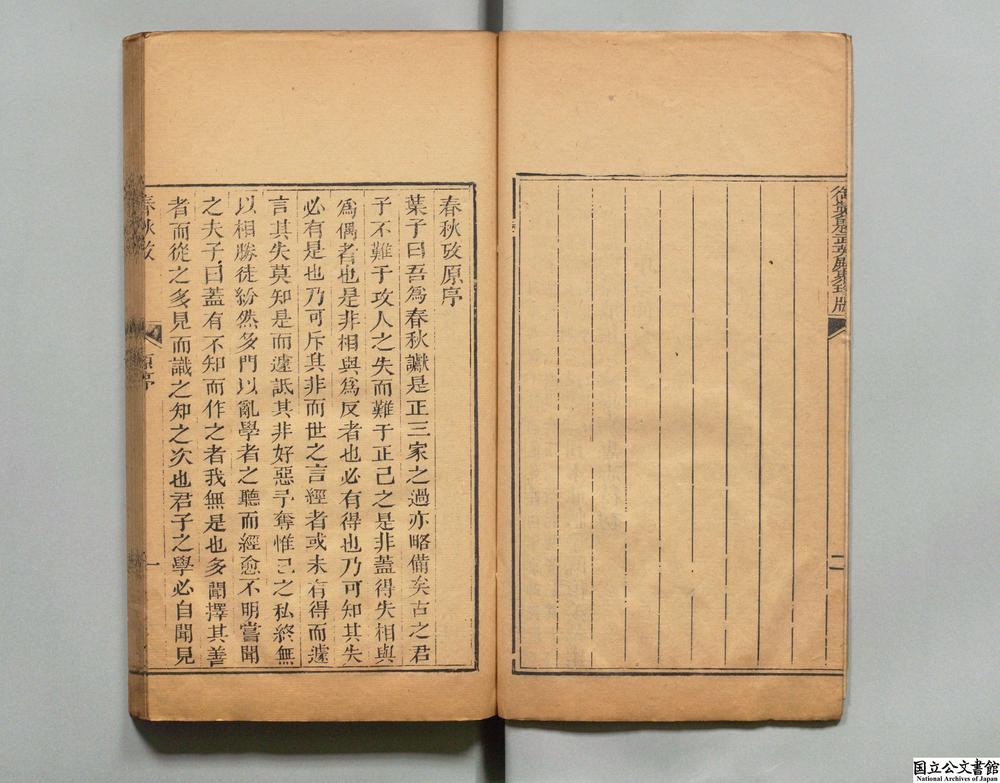 二
春秋攷原序
葉子曰吾爲春秋讞是正三家之過亦略備矣古之君
子不難于攻人之失而難于正己之是非蓋得失相與
爲偶者也是非相與爲反者也必有得也乃可知其失
必有是也乃可斥其非而世之言經者或未有得而遽
言其失莫知是而遽詆其非好惡予奪惟己之私終無
以相勝徒紛然多門以亂學者之聽而經愈不明嘗聞
之夫子曰蓋有不知而作之者我無是也多聞擇其善
者而從之多見而識之知之次也君子之學必自聞見
春秋攷
原序
一
国立公文書館
National Archives of Japan